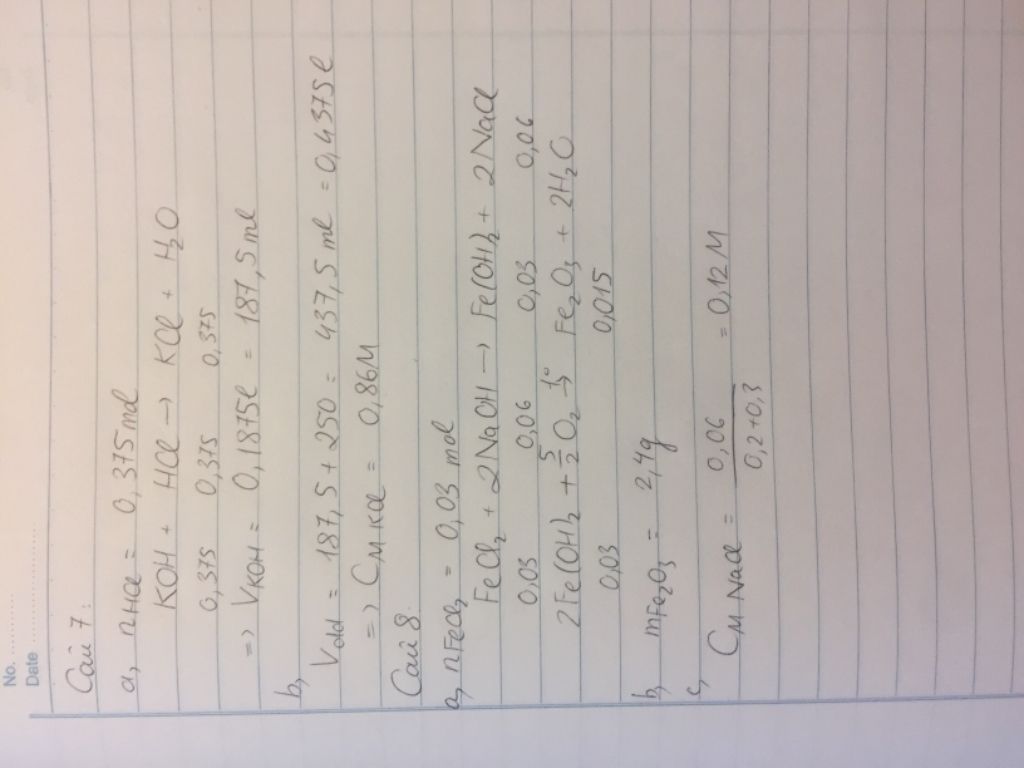 No. ..............
Date ..............
Câu 7:
a, nHCl = 0,375 mol
KOH + HCl → KCl + H2O
0,375 0,375 0,375
=> VKOH = 0,1875l = 187,5ml
b,
Vdd = 187,5 + 250 = 437,5 ml = 0,4375l
=> CM KCl = 0,86M
Câu 8.
a, nFeCl2 = 0,03 mol
FeCl2 + 2NaOH → Fe(OH)2 + 2NaCl
0,03 0,06 0,03 0,06
2Fe(OH)2 + 5/2 O2 t°→ Fe2O3 + 2H2O
0,03 0,015
b, mFe2O3 = 2,4g
c,
CM NaCl = 0,06 / 0,2+0,3 = 0,12M